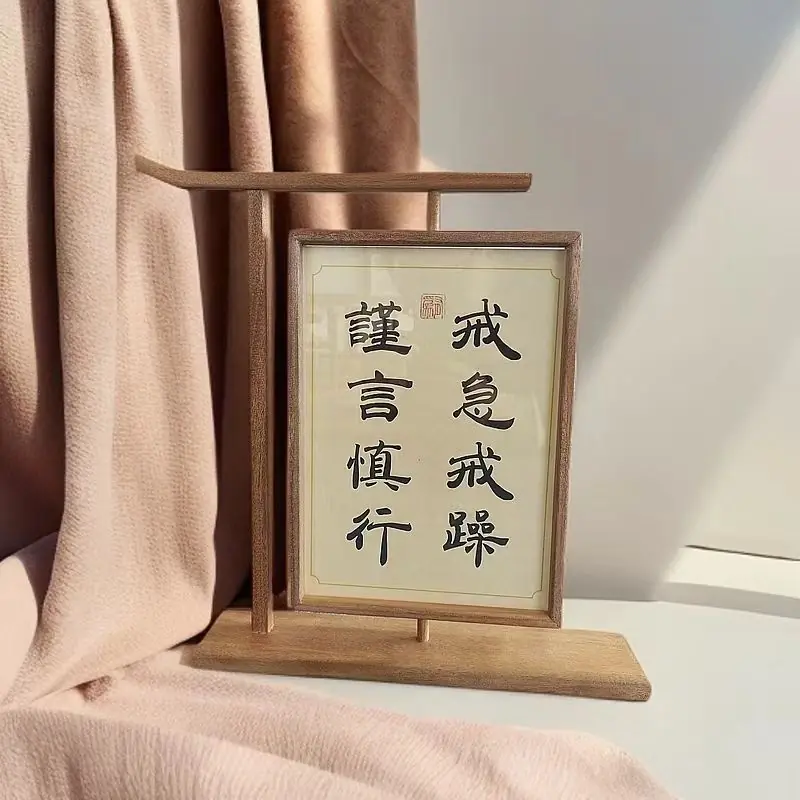 戒急戒躁
謹言慎行